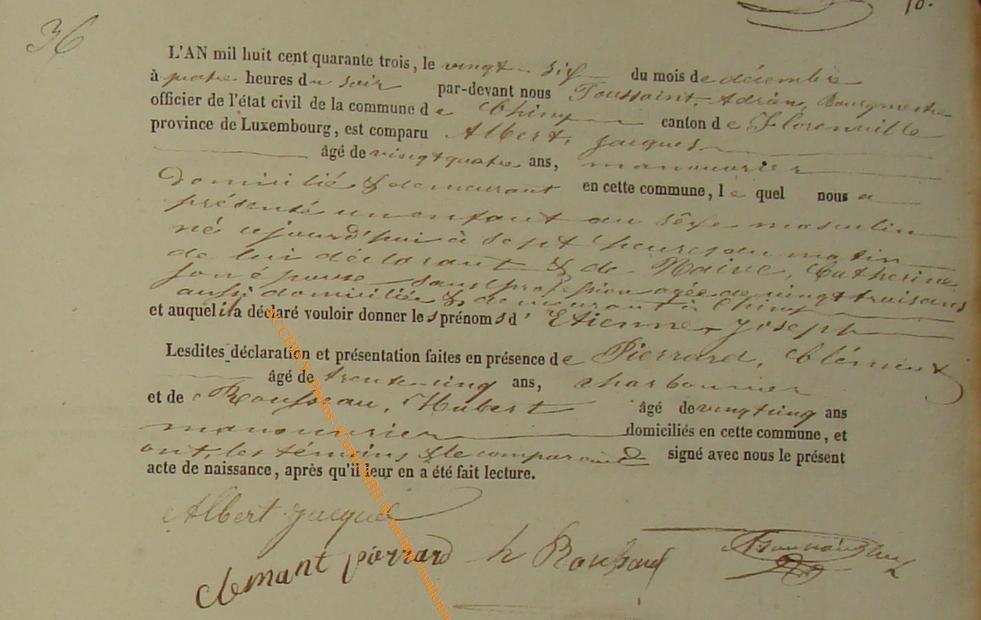 36
L'AN mil huit cent quarante trois, le vingt-six du mois de décembre
à quatre heures du soir par-devant nous Toussaint, Adrien, Bourgmestre
officier de l'état civil de la commune de Chiny canton de Florenville
province de Luxembourg, est comparu Albert, Jacques
âgé de vingt quatre ans, manouvrier
domicilié & demeurant en cette commune, le quel nous a
présenté un enfant du sêxe masculin
né cejourd'hui à sept heures du matin
de lui déclarant & de Naive, Catherine
son épouse sans profession agée de vingt trois ans
aussi domiciliée & demeurant à Chiny
et auquel il a déclaré vouloir donner les prénoms d' Etienne, Joseph
Lesdites déclaration et présentation faites en présence de Pierrard, Clément
âgé de trente-cinq ans, charbonnier
et de Rousseau, Hubert âgé de vingt cinq ans
manouvrier domiciliés en cette commune, et
ont, les témoins & le comparant signé avec nous le présent
acte de naissance, après qu'il leur en a été fait lecture.
Albert Jacque
clemant pierrard h Rousseau